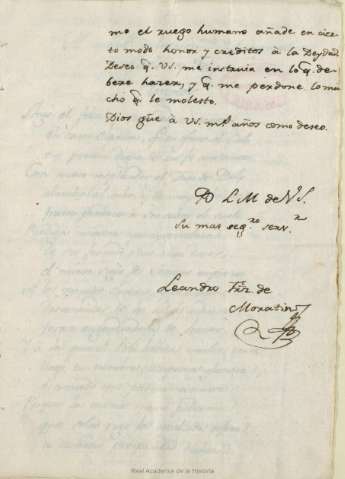 mo el ruego humano añade en cier-
to modo honor y creditos à la Deydad.
Deseo q.e VS. me instruia en lo q.e de-
bere hacer, y q.e me perdone lo mu-
cho q.e le molesto.
Dios gũe à VS. m.s años como deseo.
B L M de V.S.
su mas seg.ro serv.r
Leandro Frz. de
Moratin
Real Academia de la Historia